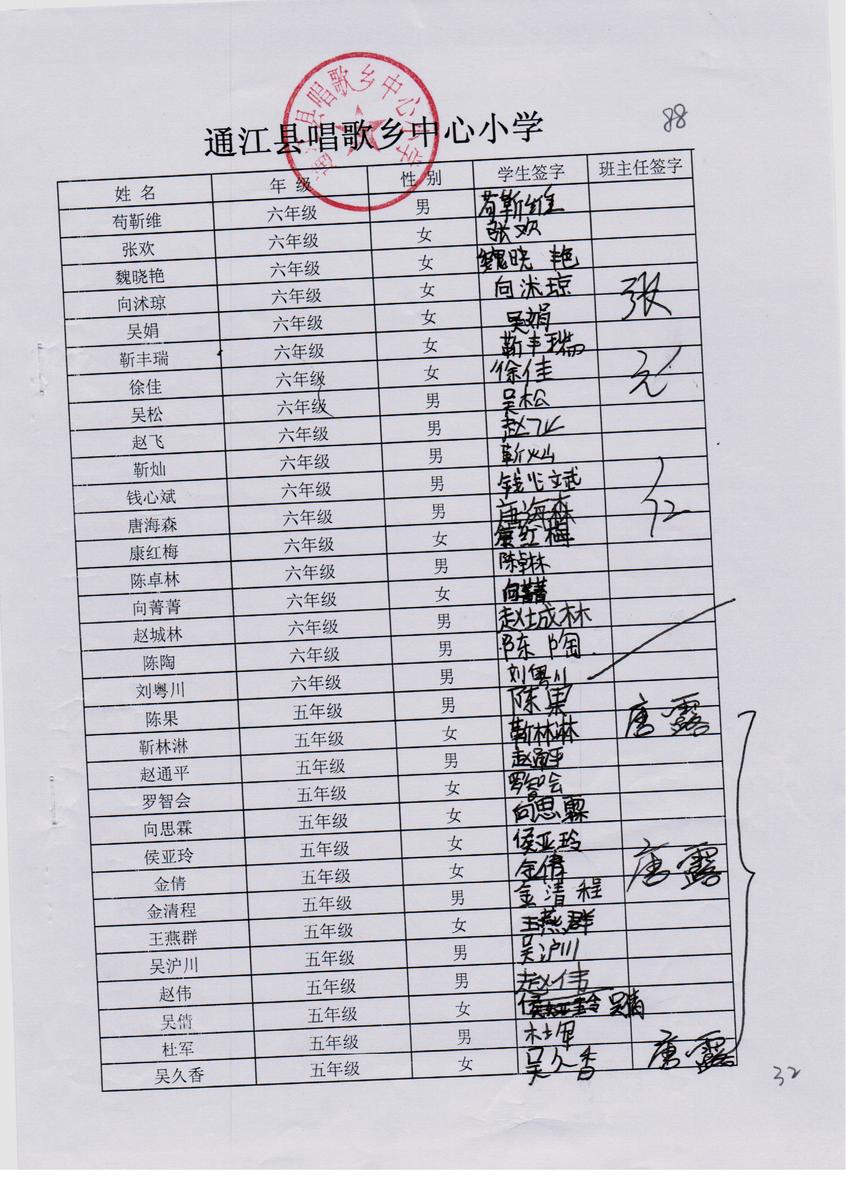 通江县唱歌乡中心小学
88
姓 名 年 级 性 别 学生签字 班主任签字
苟靳维 六年级 男 苟靳维
张欢 六年级 女 张欢
魏晓艳 六年级 女 魏晓艳
向沭琼 六年级 女 向沭琼 张
吴娟 六年级 女 吴娟
靳丰瑞 六年级 女 靳丰瑞
徐佳 六年级 女 徐佳 元
吴松 六年级 男 吴松
赵飞 六年级 男 赵飞
靳灿 六年级 男 靳灿
钱心斌 六年级 男 钱心斌
唐海森 六年级 男 唐海森 仁
康红梅 六年级 女 康红梅
陈卓林 六年级 男 陈卓林
向菁菁 六年级 女 向菁菁
赵城林 六年级 男 赵城林
陈陶 六年级 男 陈陶
刘粤川 六年级 男 刘粤川
陈果 五年级 男 陈果 唐露
靳林淋 五年级 女 靳林淋
赵通平 五年级 男 赵通平
罗智会 五年级 女 罗智会
向思霖 五年级 女 向思霖
侯亚玲 五年级 女 侯亚玲
金倩 五年级 女 金倩 唐露
金清程 五年级 男 金清程
王燕群 五年级 女 王燕群
吴沪川 五年级 男 吴沪川
赵伟 五年级 男 赵伟
吴倩 五年级 女 吴倩
杜军 五年级 男 杜军
吴久香 五年级 女 吴久香 唐露
32